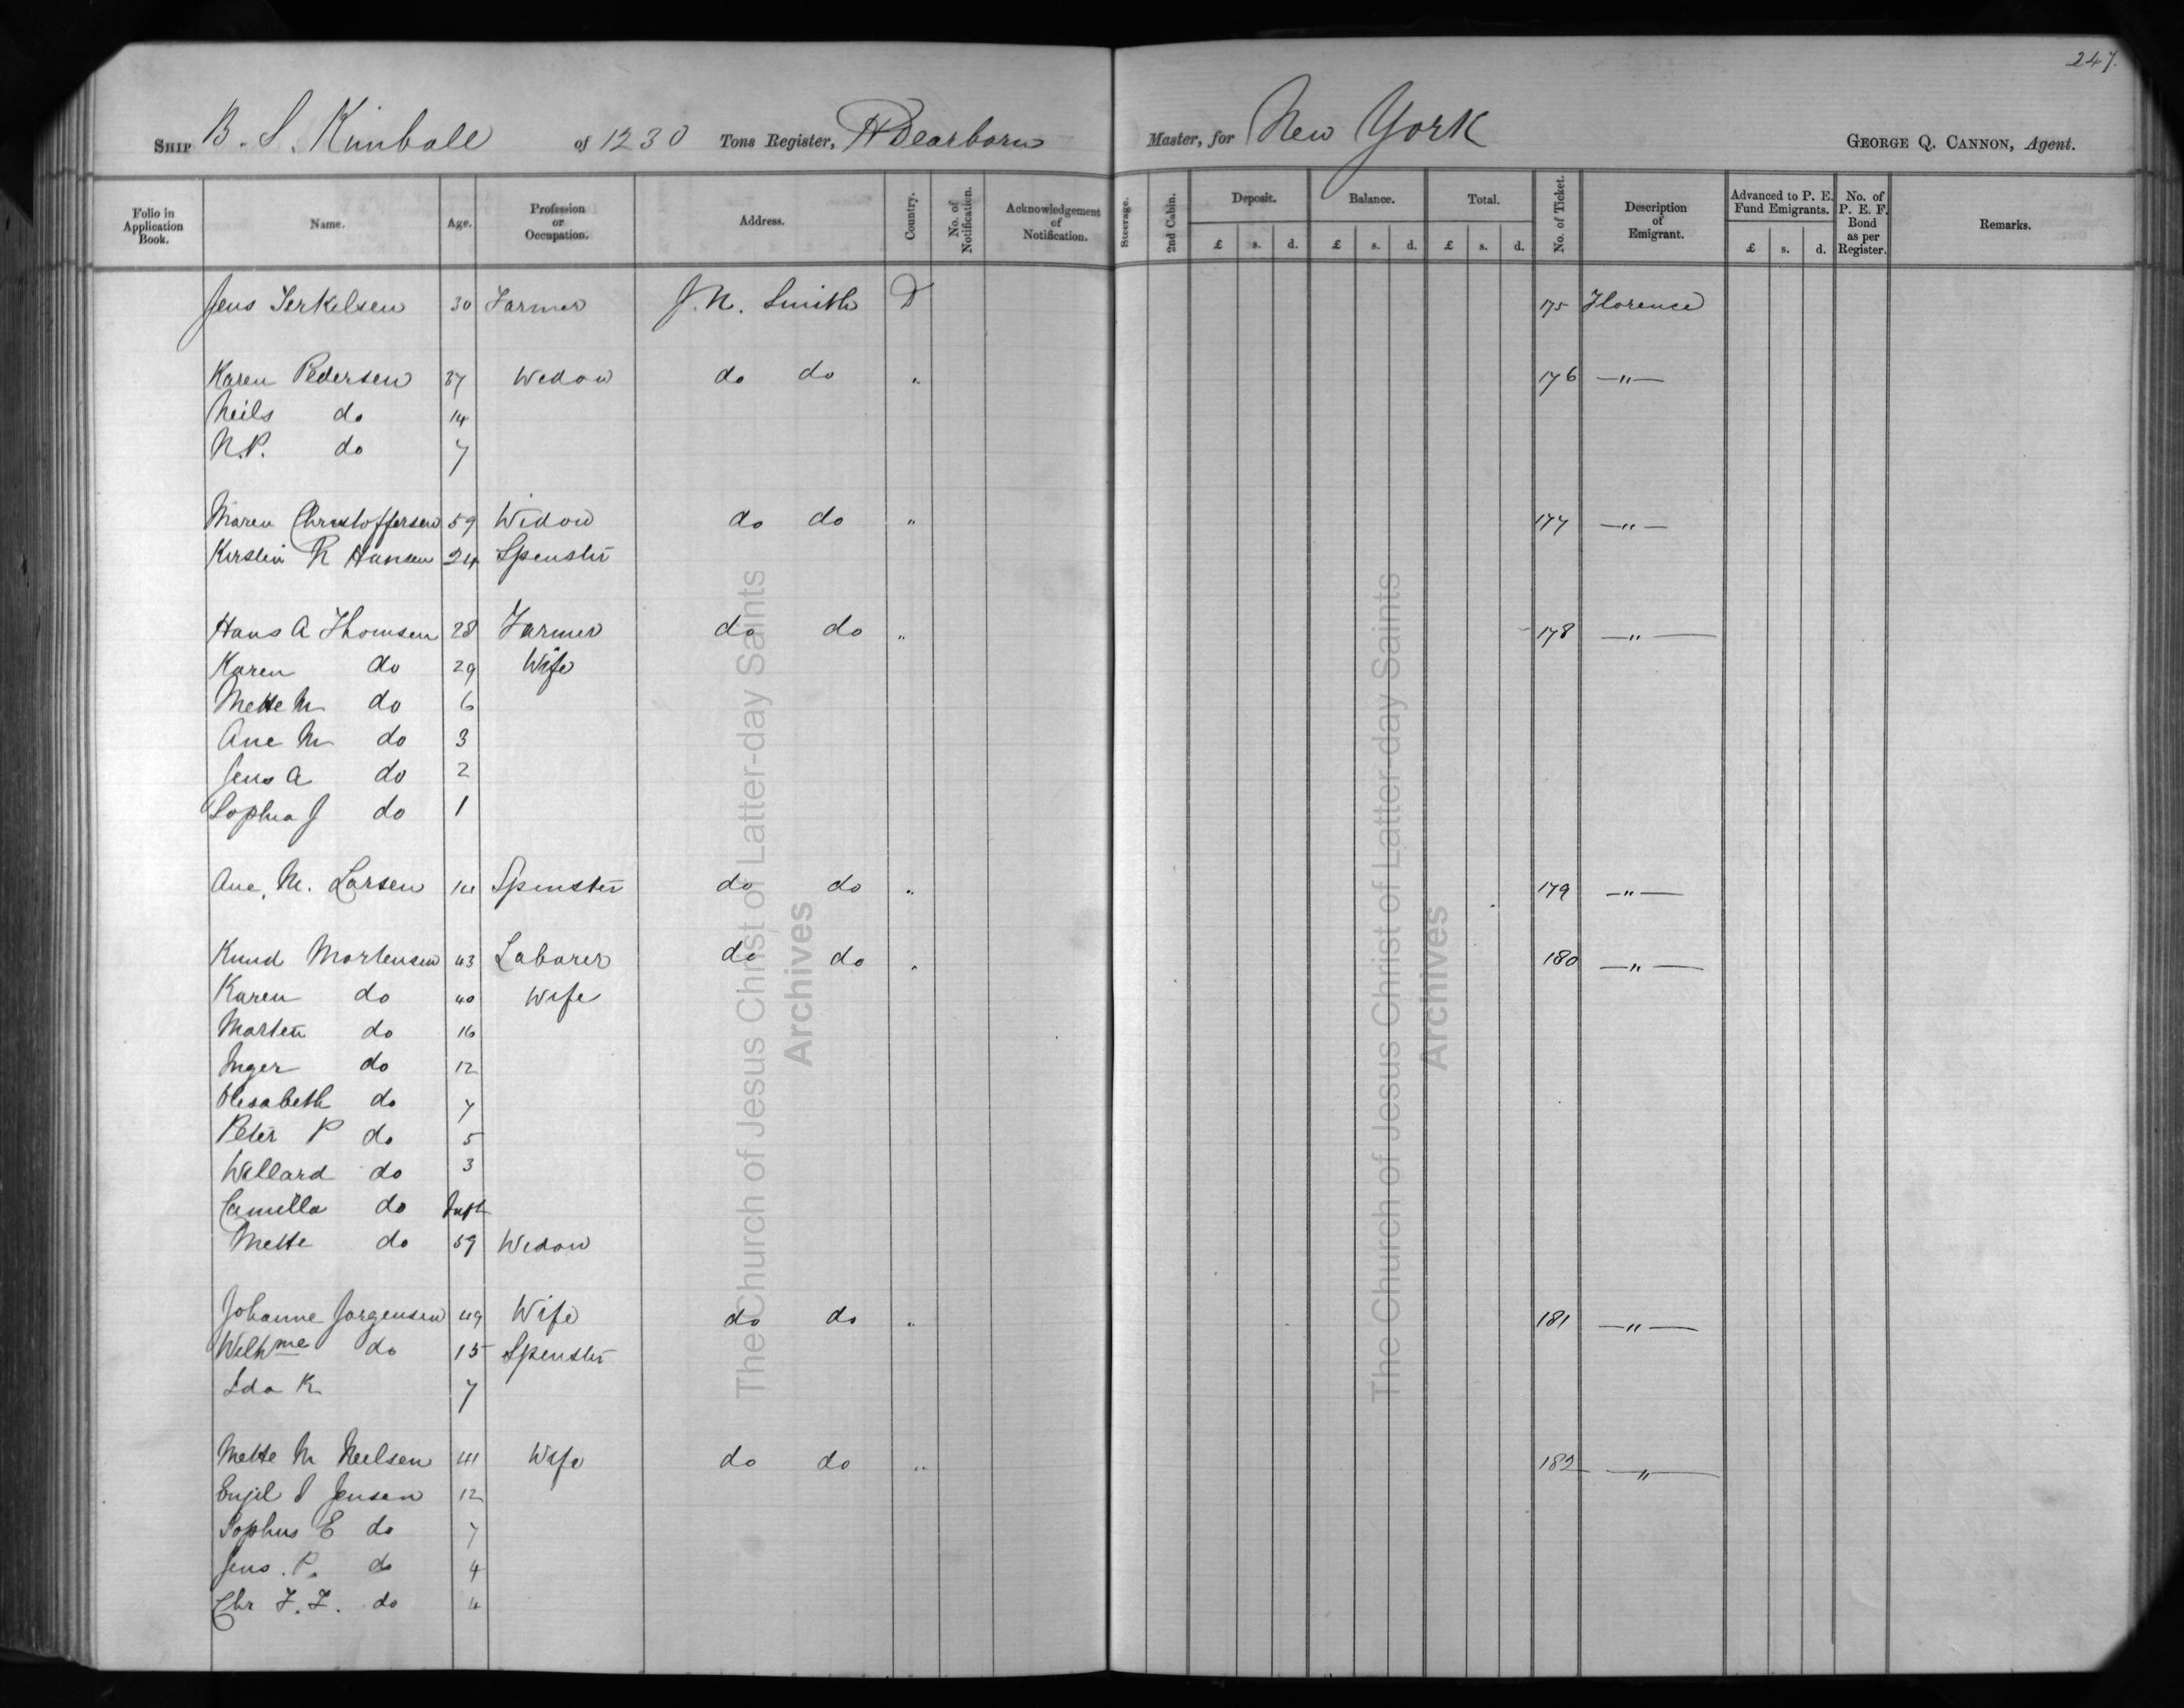 247.
SHIP B. S. Kimball of 1230 Tons Register, H Dearborn Master, for New York GEORGE Q. CANNON, Agent.
Folio in Application Book. Name. Age. Profession or Occupation. Address. Country. No. of Notification. Acknowledgement of Notification. Steerage. 2nd Cabin. Deposit. Balance. Total. No. of Ticket. Description of Emigrant. Advanced to P. E. Fund Emigrants. No. of P. E. F. Bond as per Register. Remarks.
£ s. d. £ s. d. £ s. d. £ s. d.
Jens Terkelsen 30 Farmer J. N. Smith D 175 Florence
Karen Pedersen 37 Wedow do do " 176 —"—
Neils do 14
N.P. do 7
Maren Christoffersen 59 Widow do do " 177 —"—
Kirstin R Hansen 24 Spenster
Hans A Thomsen 28 Farmer do do " 178 —"—
Karen do 29 Wife
Mette M do 6
Ane M do 3
Jens A do 2
Sophia J do 1
Ane. M. Larsen 14 Spinster do do " 179 —"—
Knud Mortensen 43 Laborer do do " 180 —"—
Karen do 40 Wife
Morten do 16
Inger do 12
Elisabeth do 7
Peter P do 5
Willard do 3
Camilla do Inft
Mette do 59 Wedow
Johanne Jorgensen 49 Wife do do " 181 —"—
Wilhme do 15 Spenster
Ida K 7
Mette M Neelsen 41 Wife do do " 182 —"—
Jensen 12
Sophus E do 7
Jens. P. do 4
Chr F. F. do 4
The Church of Jesus Christ of Latter-day Saints
Archives
The Church of Jesus Christ of Latter-day Saints
Archives